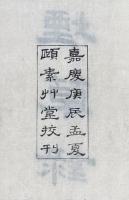 嘉慶庚辰孟夏
頤素艸堂挍刊